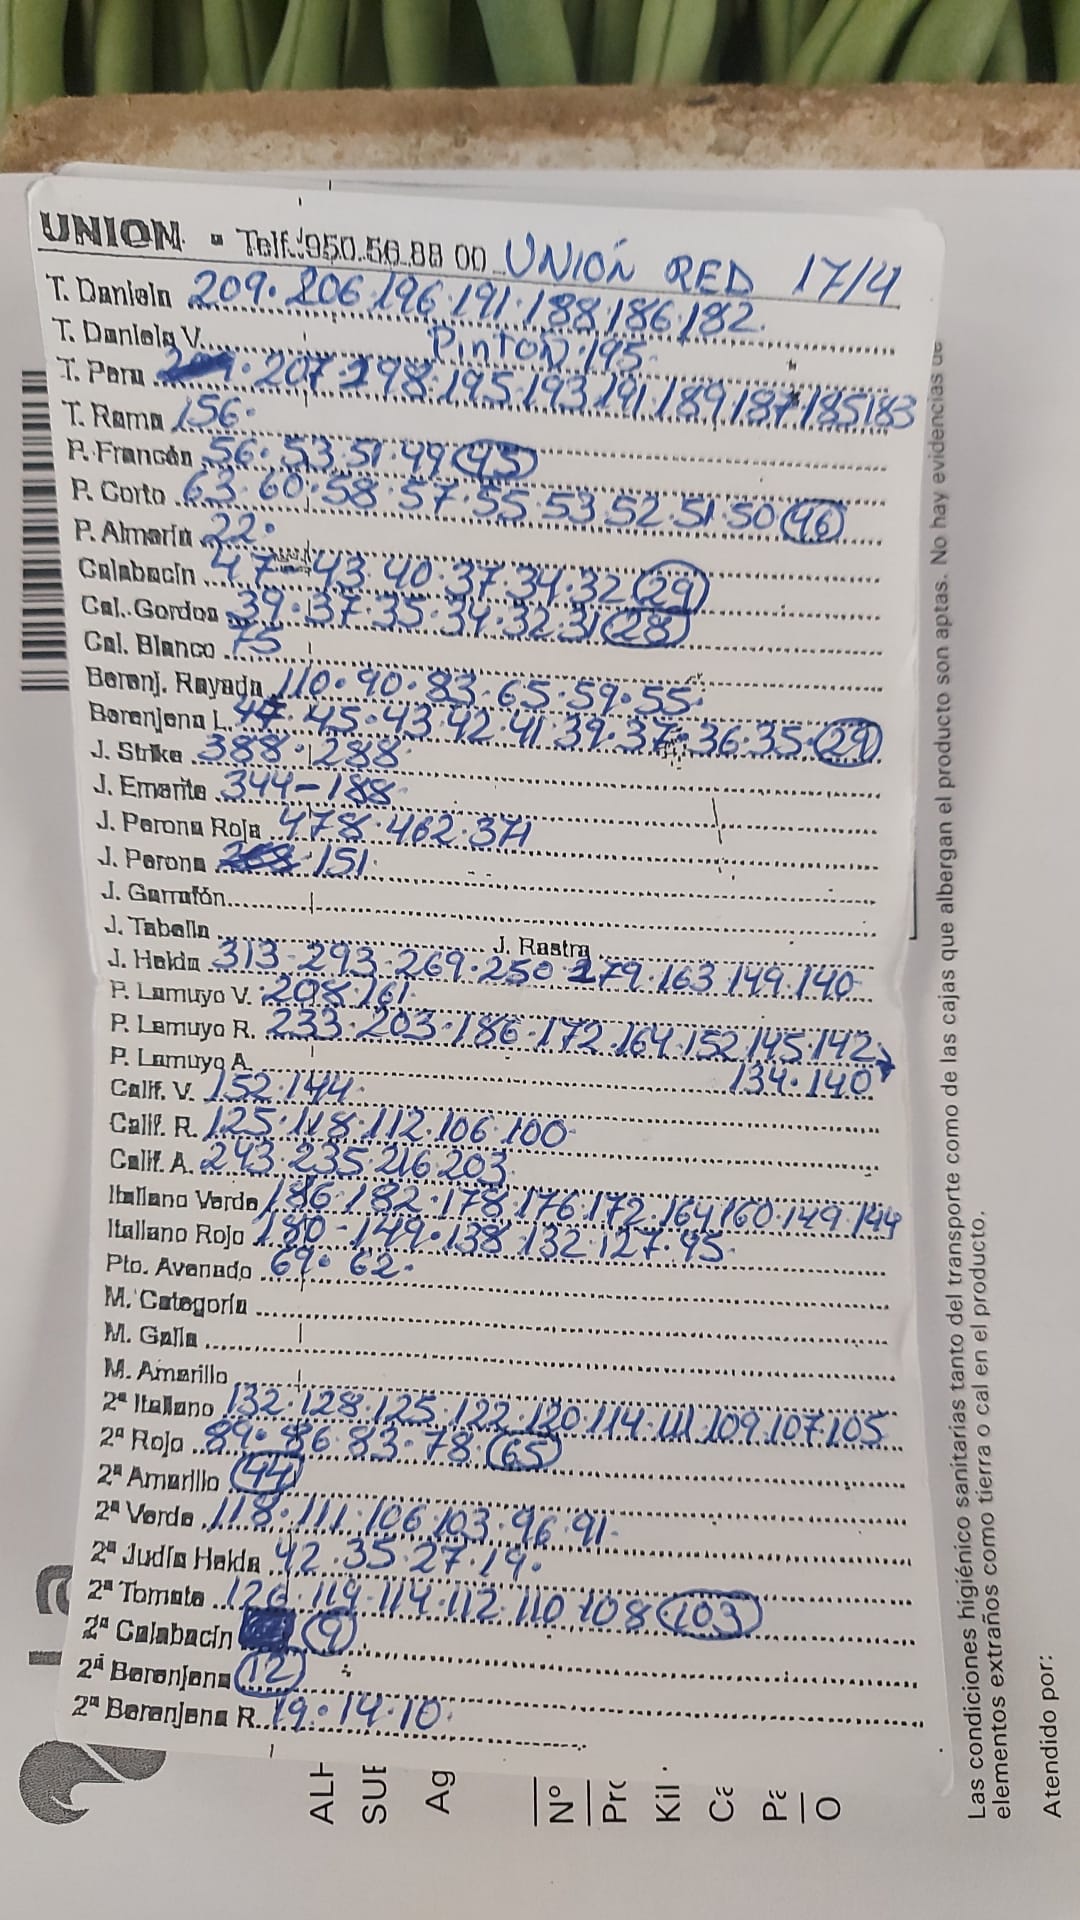 UNION - Telf. 950.56.88 00 UNIÓN RED 17/4
T. Daniela 209. 206.196.191.188.186.182.
T. Daniela V. Pinton.195
T. Pera .207.198.195.193.191.189.187.185 183
T. Rama 156.
P. Francés 56.53.51.49 (45)
P. Corto 63.60.58.57.55.53 52.51.50 (46)
P. Almería 22.
Calabacín 47-43.40.37.34.32 (29)
Cal. Gordon 39.37.35.34.32.31 (28)
Cal. Blanco 75
Berenj. Rayada 110.90.83.65.59.55.
Berenjena L. 47.45.43.42.41.39.37.36.35.(29)
J. Strike 388.288.
J. Emerite 344-188
J. Perona Roja 478.462.371
J. Perona .151.
J. Garrafón
J. Tabella J. Rastra
J. Helda 313-293-269.250 179.163.149.140
P. Lamuyo V. 208.161.
P. Lamuyo R. 233.203.186.172.164.152.145.142
P. Lamuyo A. 134.140
Calif. V. 152.144.
Calif. R. 125.118.112.106.100
Calif. A. 243.235.216.203.
Italiano Verde 186.182.178.176.172.164 160.149.144
Italiano Rojo 180-149.138.132.127.95.
Pto. Avenado 69. 62.
M. Categoría
M. Galia
M. Amarillo
2ª Italiano 132.128.125.122.120.114.111.109.107.105
2ª Rojo 89.86.83.78.(65)
2ª Amarillo (44)
2ª Verde 118.111.106 103.96.91.
2ª Judía Helda 42.35.27.19.
2ª Tomate 126.119.114.112.110 108 (103)
2ª Calabacín (9)
2ª Berenjena (12)
2ª Berenjena R. 19.14.10.
ALH
SUE
Ag
Nº
Pro
Kil
Ca
Pa
O
Las condiciones higiénico sanitarias tanto del transporte como de las cajas que albergan el producto son aptas. No hay evidencias de
elementos extraños como tierra o cal en el producto.
Atendido por: